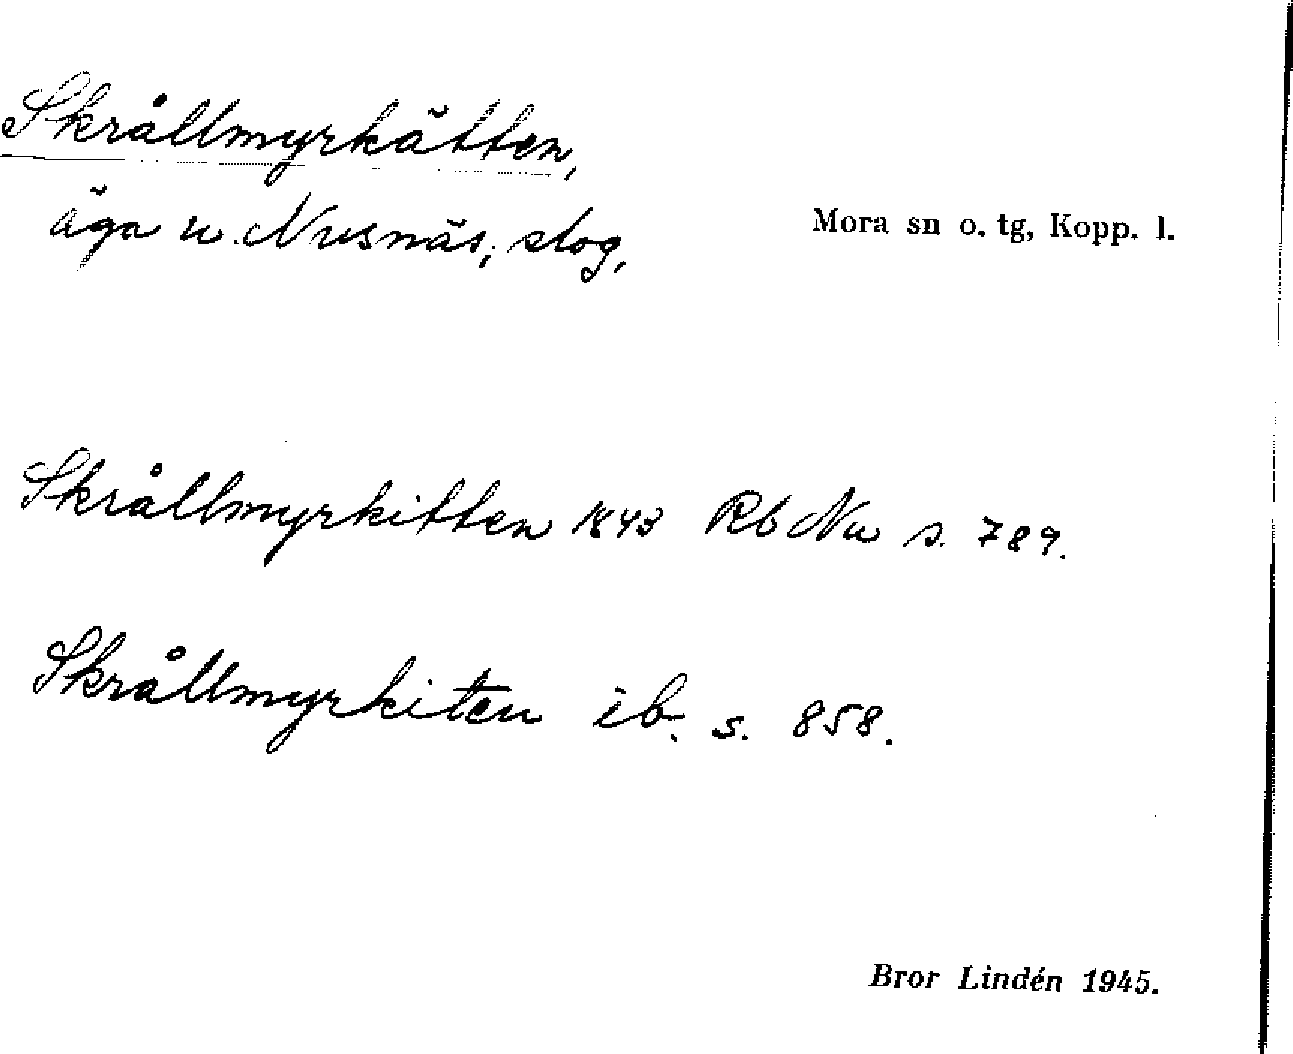 Skrållmyrkätten,
äga u. Nusnäs, slog,
Mora sn o. tg, Kopp. l.
Skrållmyrkitten 1843 Rb Nu s. 789.
Skrållmyrkiten ib. s. 858.
Bror Lindén 1945.